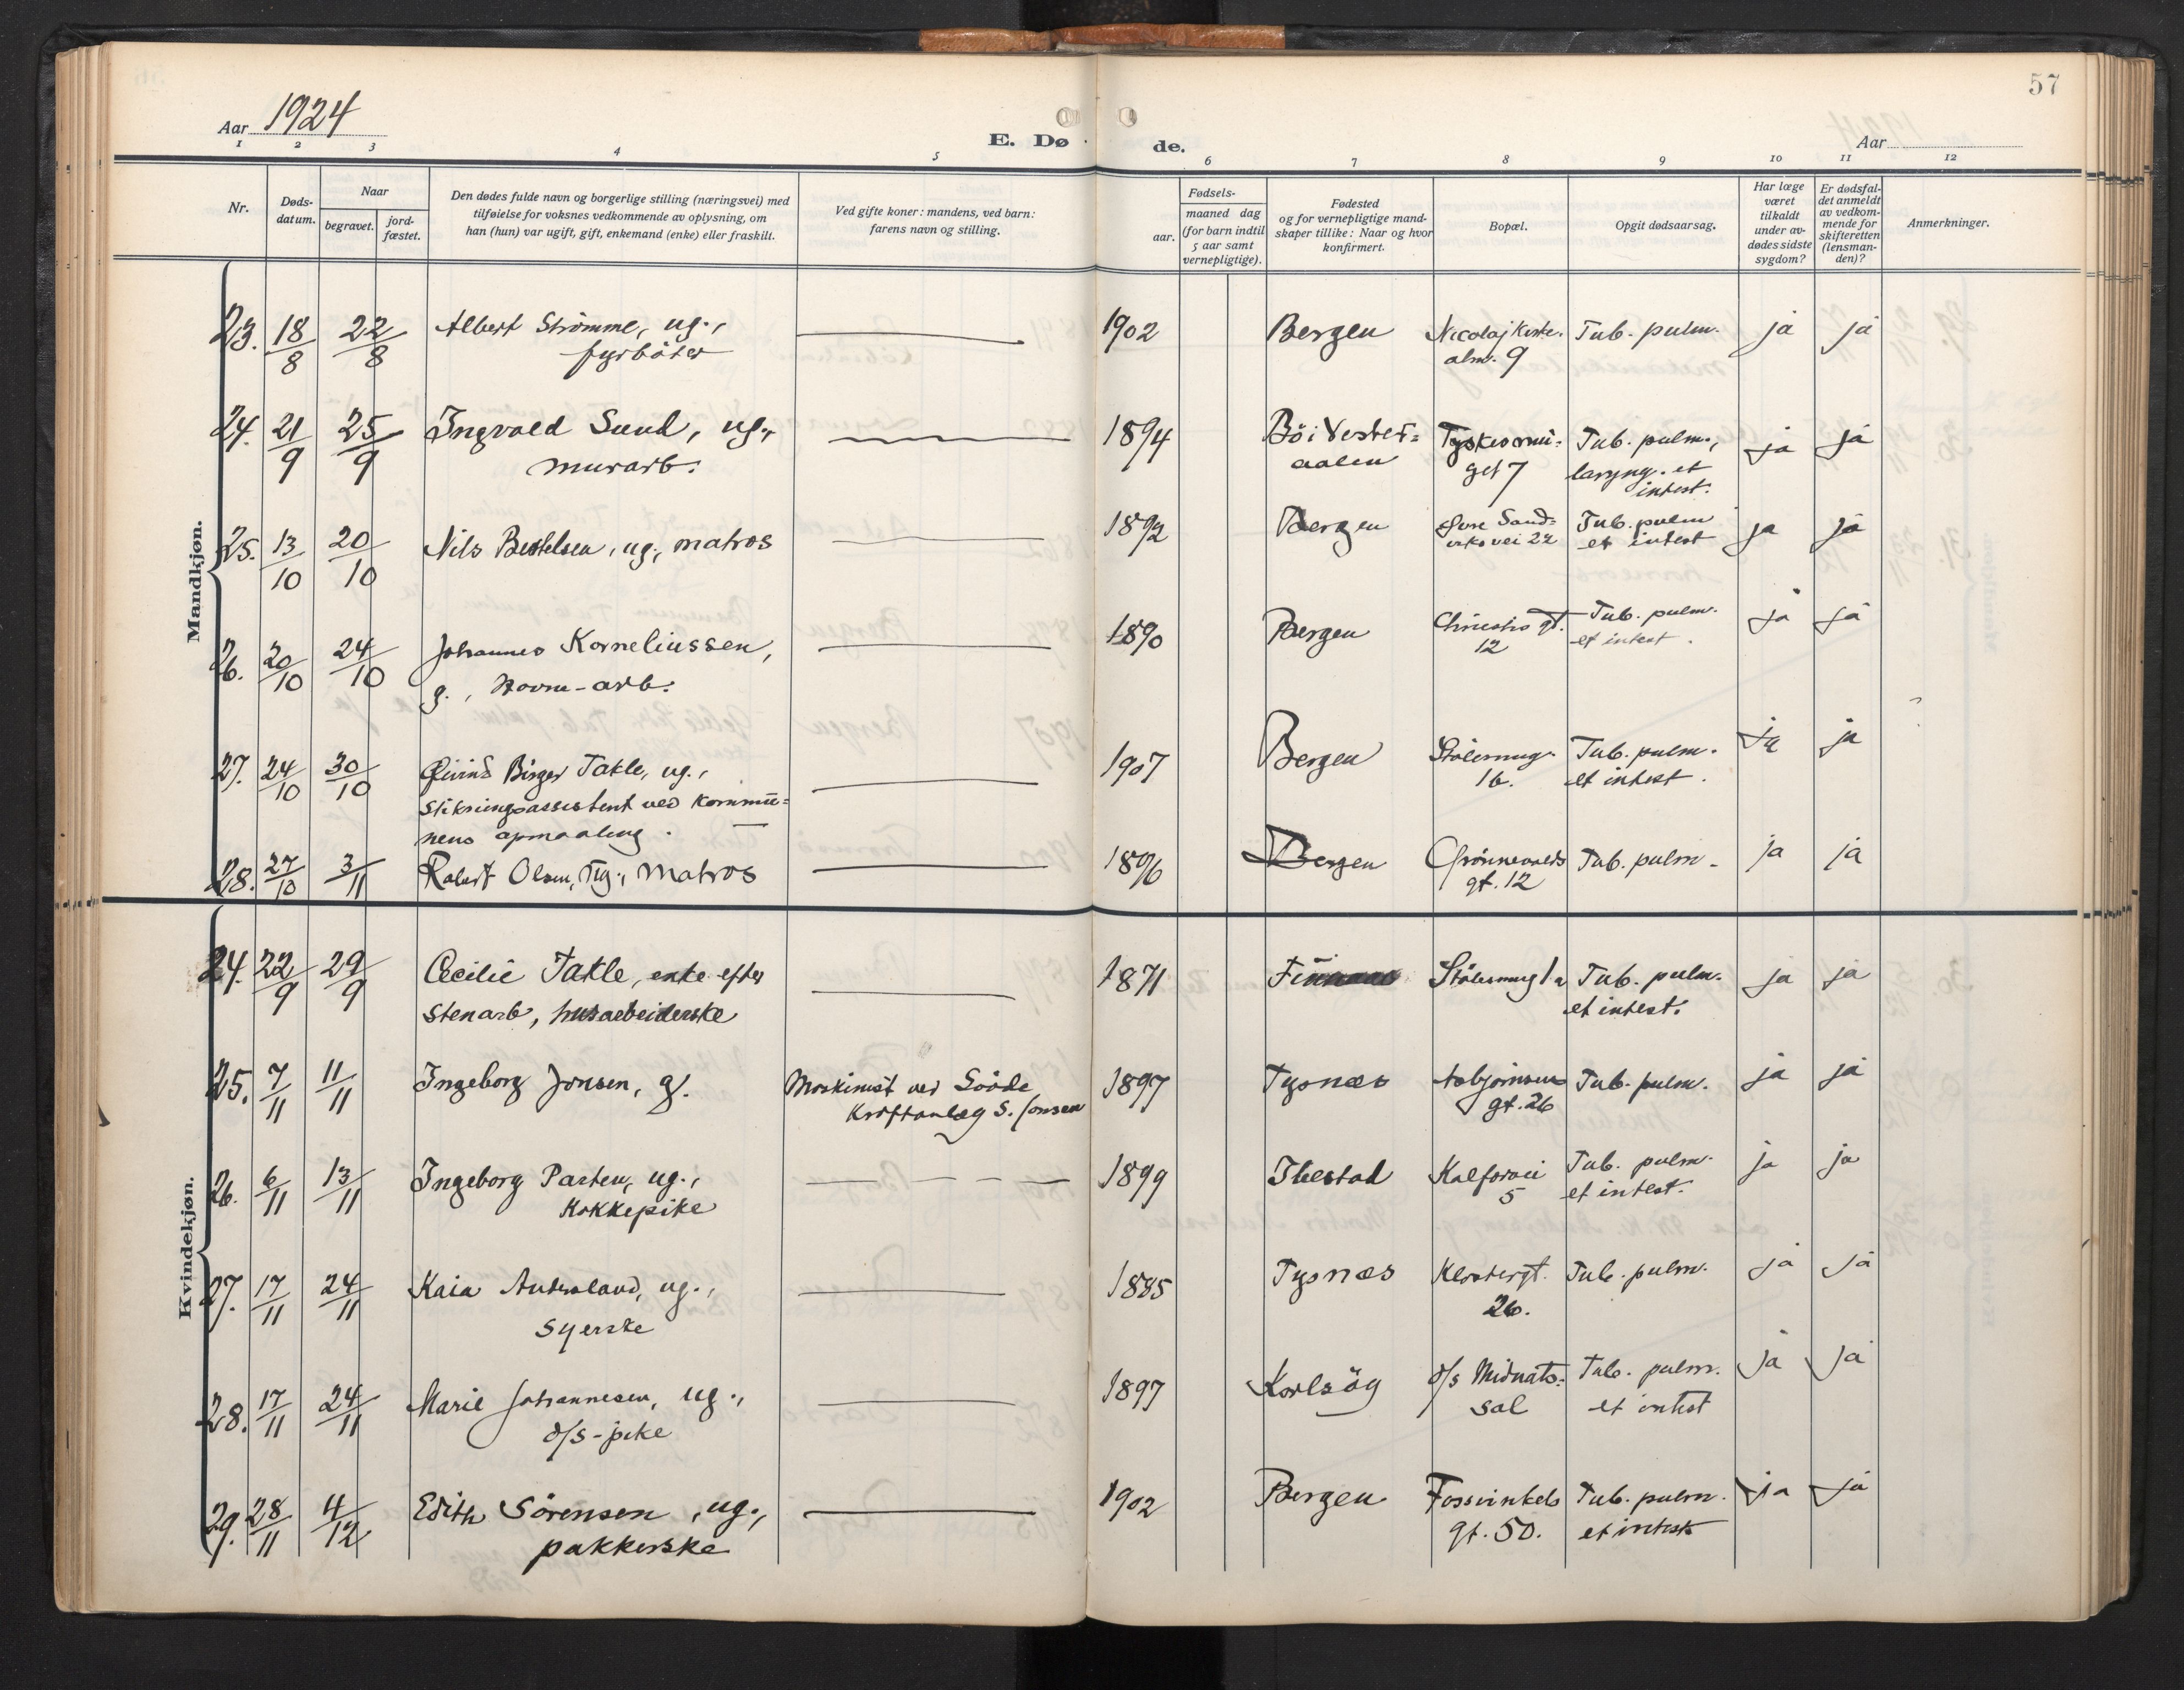 57
Aar 1924
E. Dø de.
Aar
1 2 3 4 5 6 7 8 9 10 11 12
Nr.
Døds-
datum.
Naar
begravet.
jord-
fæstet.
Den dødes fulde navn og borgerlige stilling (næringsvei) med
tilføielse for voksnes vedkommende av oplysning, om
han (hun) var ugift, gift, enkemand (enke) eller fraskilt.
Ved gifte koner: mandens, ved barn:
farens navn og stilling.
aar.
Fødsels-
maaned dag
(for barn indtil
5 aar samt
vernepligtige).
Fødested
og for vernepligtige mand-
skaper tillike: Naar og hvor
konfirmert.
Bopæl.
Opgit dødsaarsag.
Har læge
været
tilkaldt
under av-
dødes sidste
sygdom?
Er dødsfal-
det anmeldt
av vedkom-
mende for
skifteretten
(lensman-
den)?
Anmerkninger.
Mandkjøn.
23. 18/8 22/8 Albert Strömme, ug., 1902 Bergen Nicolajkirke. Tub. pulm. ja ja
fyrböter alm. 9
24. 21/9 25/9 Ingvald Sund, ug., 1894 Bö i Vester= Tub. pulm., ja ja
murarb. aalen get 7 laryng. et
intest.
25. 13/10 20/10 Nils Bertelsen, ug., matros 1892 Bergen Tub. pulm ja ja
Sand=
viksvei 22 et intest
26. 20/10 24/10 Johannes Korneliussen, 1890 Bergen Christies gt. Tub. pulm. ja ja
g., havne-arb. 12 et intest.
27. 24/10 30/10 Øivind Birger Takle, ug., 1907 Bergen Stölesmug. Tub. pulm. ja ja
stikningsassistent ved kommu= 16. et intest.
nens opmaaling.
28. 27/10 3/11 Robert Olsen, ug., matros 1896 Bergen Grönnevolds Tub. pulm. ja ja
gt. 12
Kvindekjøn.
24. 22/9 29/9 Cecilie Takle, enke efter 1871 Stölesmug Tub. pulm. ja ja
stenarb, husarbeiderske et intest.
25. 7/11 11/11 Ingeborg Jonsen, g. Maskinist ved 1897 Tysnæs Asbjörnsens Tub. pulm. ja ja
Kraftanlæg S. Jonsen gt. 26
26. 6/11 13/11 Ingeborg ug., 1899 Ibestad Kalfarvei Tub. pulm. ja ja
Kokkepike 5 et intest.
27. 17/11 24/11 Kaia ug., 1885 Tysnæs Klostergt. Tub. pulm. ja ja
syerske 26.
28. 17/11 24/11 Marie Johannesen, ug., 1897 Karlsöy d/s Midnats= Tub. pulm. ja ja
d/s-pike sol et intest
29. 28/11 4/12 Edith Sörensen, ug., 1902 Bergen Fosswinkels Tub. pulm. ja ja
pakkerske gt. 50. et intest